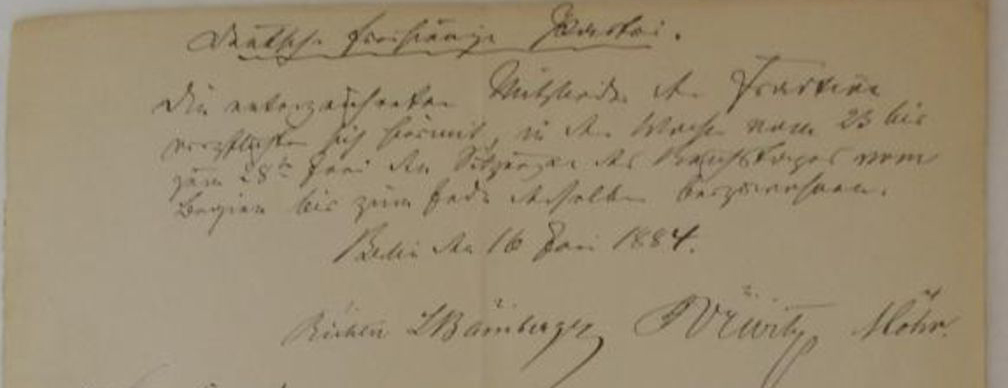 Deutsche freisinnige Partei.
Die unterzeichneten Mitglieder der Fraktion
verpflichten sich hiermit, in der Woche vom 23 bis
zum 28ten Juni den Sitzungen des Reichstages vom
Beginn bis zum Ende derselben beizuwohnen.
Berlin den 16 Juni 1884.
LBamberger Möhr.